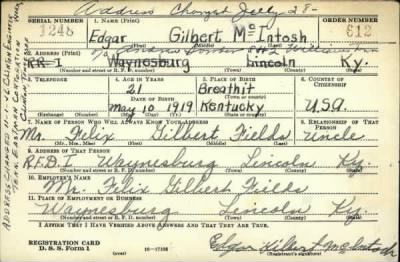 Address Changed July 28-
SERIAL NUMBER
1248
1. NAME (Print)
Edgar Gilbert McIntosh
(First) (Middle) (Last)
ORDER NUMBER
612
2. ADDRESS (Print)
RR 1 Waynesburg Lincoln Ky.
(Number and street or R. F. D. number) (Town) (County) (State)
3. TELEPHONE
4. AGE IN YEARS
21
5. PLACE OF BIRTH
Breathit
6. COUNTRY OF CITIZENSHIP
DATE OF BIRTH
May 10 1919
(Mo.) (Day) (Yr.)
Kentucky
(State or country)
U.S.A.
7. NAME OF PERSON WHO WILL ALWAYS KNOW YOUR ADDRESS
Mr. Felix Gilbert Fields
(Mr., Mrs., Miss) (First) (Middle) (Last)
8. RELATIONSHIP OF THAT PERSON
Uncle
9. ADDRESS OF THAT PERSON
R.F.D. 1 Waynesburg Lincoln Ky.
(Number and street or R. F. D. number) (Town) (County) (State)
10. EMPLOYER'S NAME
Mr. Felix Gilbert Fields
11. PLACE OF EMPLOYMENT OR BUSINESS
Waynesburg Lincoln Ky.
(Number and street or R. F. D. number) (Town) (County) (State)
I AFFIRM THAT I HAVE VERIFIED ABOVE ANSWERS AND THAT THEY ARE TRUE.
REGISTRATION CARD
D. S. S. Form 1
Edgar Gilbert McIntosh
(Registrant's signature)
ADDRESS CHANGED